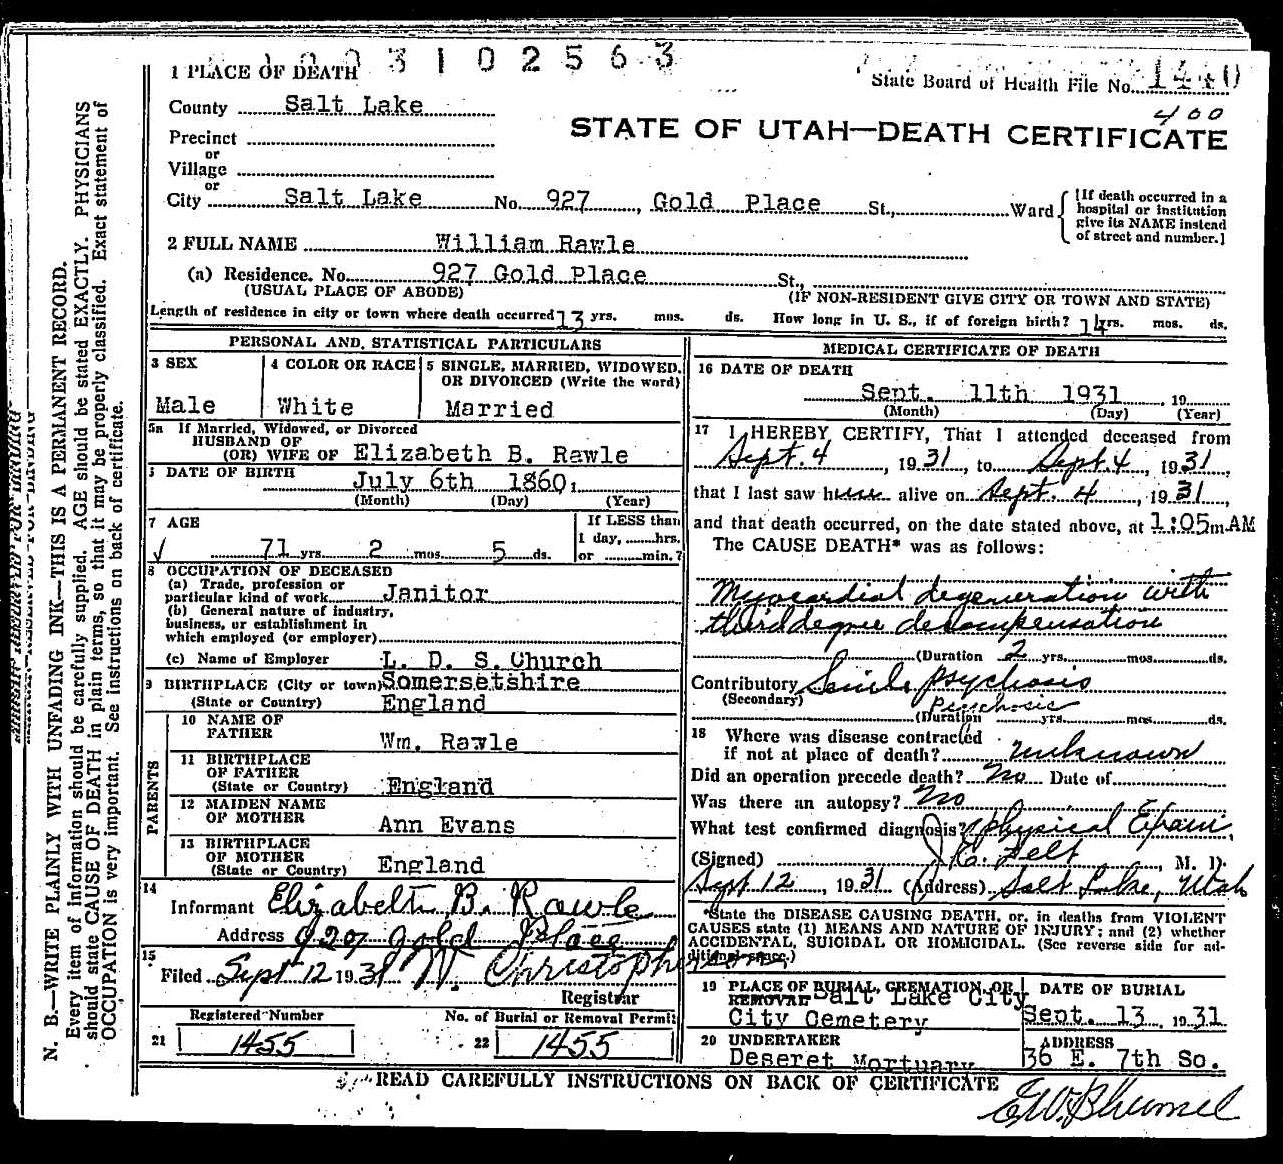 1003102563
1 PLACE OF DEATH
State Board of Health File No. 1440
County Salt Lake
400
STATE OF UTAH—DEATH CERTIFICATE
Precinct
or
Village
or
City Salt Lake No. 927, Gold Place St., Ward
[If death occurred in a hospital or institution give its NAME instead of street and number.]
2 FULL NAME William Rawle
(a) Residence. No. 927 Gold Place St.,
(USUAL PLACE OF ABODE) (IF NON-RESIDENT GIVE CITY OR TOWN AND STATE)
Length of residence in city or town where death occurred 13 yrs. mos. ds. How long in U. S., if of foreign birth? 14 yrs. mos. ds.
PERSONAL AND STATISTICAL PARTICULARS
3 SEX
Male
4 COLOR OR RACE
White
5 SINGLE, MARRIED, WIDOWED, OR DIVORCED (Write the word)
Married
5a If Married, Widowed, or Divorced
HUSBAND OF
(OR) WIFE OF Elizabeth B. Rawle
DATE OF BIRTH
July 6th 1860,
(Month) (Day) (Year)
7 AGE
71 yrs. 2 mos. 5 ds.
If LESS than
1 day, hrs.
or min.?
8 OCCUPATION OF DECEASED
(a) Trade, profession or
particular kind of work Janitor
(b) General nature of industry,
business, or establishment in
which employed (or employer)
(c) Name of Employer L. D. S. Church
9 BIRTHPLACE (City or town) Somersetshire
(State or Country) England
PARENTS
10 NAME OF
FATHER Wm. Rawle
11 BIRTHPLACE
OF FATHER
(State or Country) England
12 MAIDEN NAME
OF MOTHER Ann Evans
13 BIRTHPLACE
OF MOTHER
(State or Country) England
14
Informant Elizabeth B. Rawle
Address 927 Gold Place
15
Filed Sept 12 1931 W. Christopherson,
Registrar
Registered Number
21 1455
No. of Burial or Removal Permit
22 1455
MEDICAL CERTIFICATE OF DEATH
16 DATE OF DEATH
Sept. 11th 1931, 19
(Month) (Day) (Year)
17 I HEREBY CERTIFY, That I attended deceased from
Sept. 4, 1931, to Sept. 4, 1931,
that I last saw him alive on Sept. 4, 1931,
and that death occurred, on the date stated above, at 1:05 m. AM
The CAUSE DEATH* was as follows:
Myocardial degeneration with
third degree decompensation
(Duration 2 yrs. mos. ds.
Contributory Senile psychosis
(Secondary) Psychosis
(Duration yrs. mos. ds.
18 Where was disease contracted
if not at place of death? unknown
Did an operation precede death? No Date of
Was there an autopsy? No
What test confirmed diagnosis? Physical Exam,
(Signed) J. E. Felt, M. D.
Sept 12, 1931 (Address) Salt Lake, Utah
*State the DISEASE CAUSING DEATH, or, in deaths from VIOLENT
CAUSES state (1) MEANS AND NATURE OF INJURY; and (2) whether
ACCIDENTAL, SUICIDAL OR HOMICIDAL. (See reverse side for ad-
ditional space.)
19 PLACE OF BURIAL, CREMATION, OR
REMOVAL Salt Lake City
City Cemetery
DATE OF BURIAL
Sept. 13, 1931
20 UNDERTAKER
Deseret Mortuary
ADDRESS
36 E. 7th So.
READ CAREFULLY INSTRUCTIONS ON BACK OF CERTIFICATE
N. B.—WRITE PLAINLY WITH UNFADING INK—THIS IS A PERMANENT RECORD.
Every item of information should be carefully supplied. AGE should be stated EXACTLY. PHYSICIANS
should state CAUSE OF DEATH in plain terms, so that it may be properly classified. Exact statement of
OCCUPATION is very important. See instructions on back of certificate.